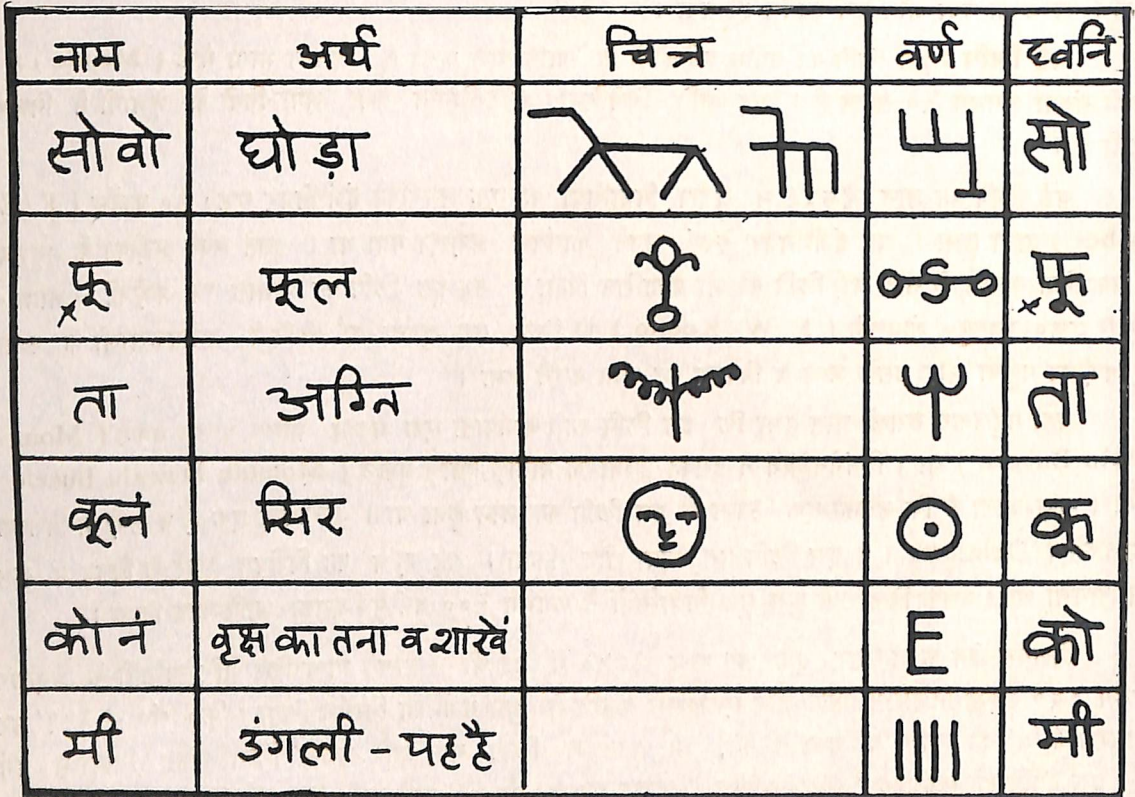 नाम अर्थ चित्र वर्ण ध्वनि
सोवो घोड़ा सो
फू़ फूल फू़
ता अग्नि ता
कूनं सिर कू
कोनं वृक्ष का तना व शाखें को
मी उंगली - यह है मी